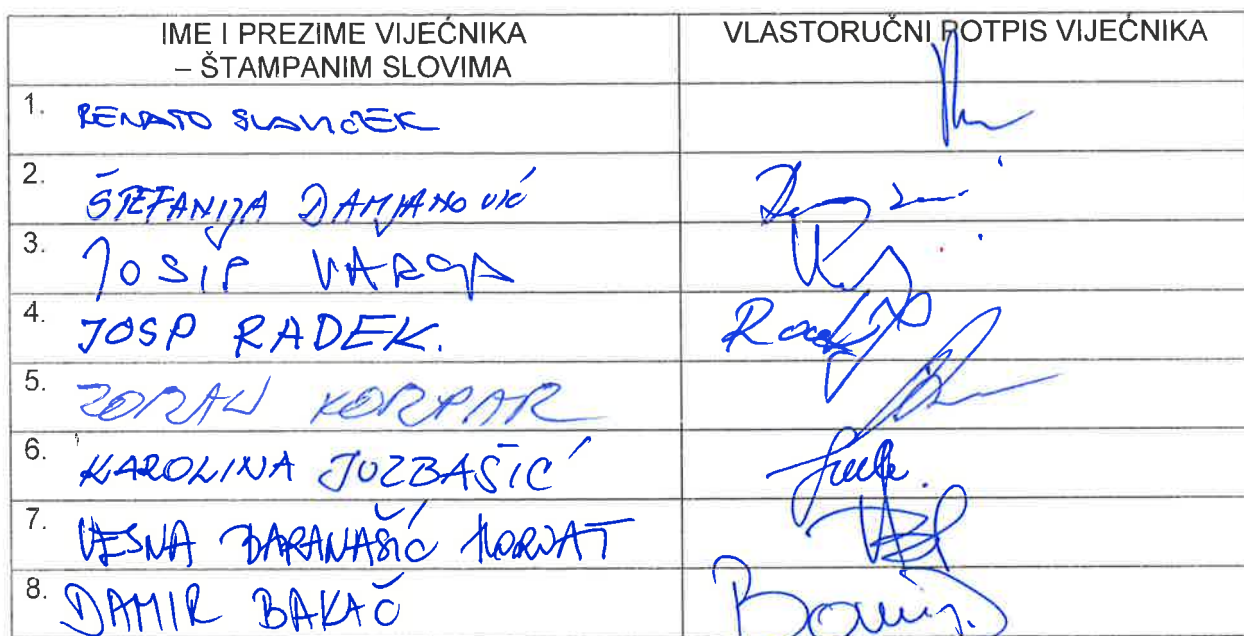 IME I PREZIME VIJEĆNIKA
– ŠTAMPANIM SLOVIMA
VLASTORUČNI POTPIS VIJEĆNIKA
1. RENATO SLAVIČEK
2. ŠTEFANIJA DAMJANOVIĆ
3. JOSIP VARGA
4. JOSP RADEK.
5. ZORAN KORPAR
6. KAROLINA JOZBAŠIĆ
7. VESNA BARANAŠIĆ HORVAT
8. DAMIR BAKAČ